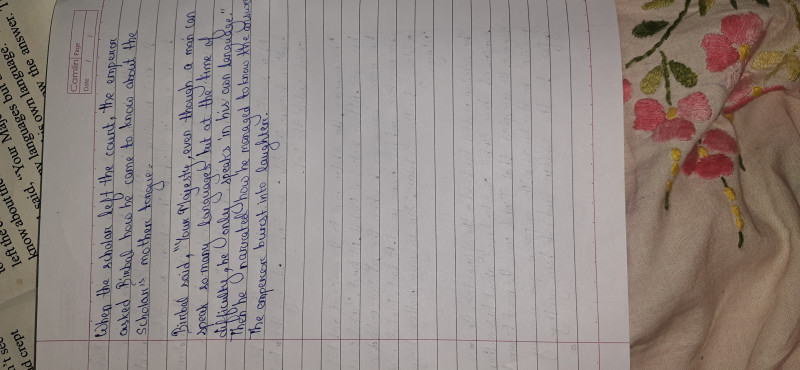 Camlin Page
Date / /
When the scholar left the court, the emperor
asked Birbal how he came to know about the
Scholar's mother tongue.
Birbal said, "Your Majesty, even though a man can
speak so many languages but at the time of
difficulty, he only speaks in his own language."
Then he narrated how he managed to know the answer
The emperor burst into laughter.
left the
know about the
said, "Your Maj
languages but
is own language.
w the answer. T
n't see
d crept